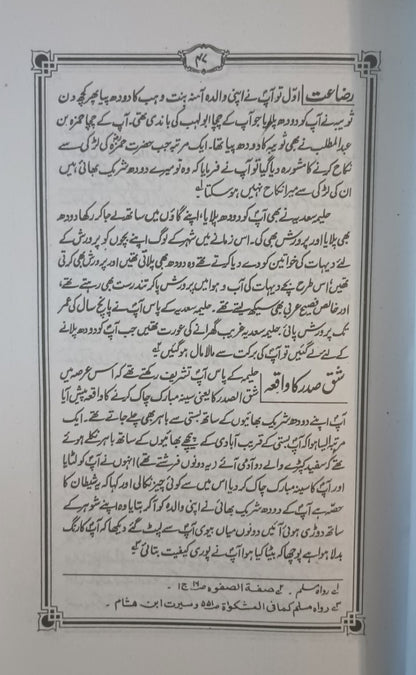 ۴۷
رضاعت اوّل تو آپؐ نے اپنی والدہ آمنہ بنت وہب کا دودھ پیا پھر کچھ دن
ثویبہ نے آپ کو دودھ پلایا جو آپ کے چچا ابولہب کی باندی تھی۔ آپ کے چچا حمزہ بن
عبدالمطلب نے بھی ثویبہ کا دودھ پیا تھا۔ ایک مرتبہ جب حضرت حمزہؓ کی لڑکی سے
نکاح کرنے کا مشورہ دیا گیا تو آپ نے فرمایا کہ وہ تو میرے دودھ شریک بھائی ہیں
ان کی لڑکی سے میرا نکاح نہیں ہو سکتا لے
حلیمہ سعدیہ نے بھی آپؐ کو دودھ پلایا، اپنے گاؤں میں ساتھ لے جا کر رکھا دودھ
بھی پلایا اور پرورش بھی کی۔ اس زمانے میں شہر کے لوگ اپنے بچوں کو پرورش کے
لئے دیہات کی خواتین کو دے دیا کرتے تھے وہ دودھ بھی پلاتی تھیں اور پرورش بھی کرتی
تھیں اس طرح بچے دیہات کی آب و ہوا میں پرورش پا کر تندرست بھی رہتے تھے،
اور خالص فصیح عربی بھی سیکھ لیتے تھے۔ حلیمہ سعدیہ کے پاس آپؐ نے پانچ سال کی عمر
تک پرورش پائی، حلیمہ سعدیہ غریب گھرانے کی عورت تھیں جب آپؐ کو دودھ پلانے
کے لئے لے گئیں تو آپؐ کی برکت سے مالا مال ہو گئیں
شق صدر کا واقعہ حلیمہ کے پاس آپؐ تشریف رکھتے تھے کہ اس عرصہ میں
شق الصدر کا یعنی سینہ مبارک چاک کرنے کا واقعہ پیش آیا
آپؐ اپنے دودھ شریک بھائیوں کے ساتھ بستی سے باہر بھی چلے جاتے تھے۔ ایک
مرتبہ ایسا ہوا کہ آپؐ بستی کے قریب آبادی کے پیچھے بھائیوں کے ساتھ باہر نکلے ہوئے
تھے کہ سفید کپڑے والے دو آدمی آئے (یہ دونوں فرشتے تھے) انہوں نے آپؐ کو لٹایا
اور آپؐ کا سینہ مبارک چاک کر دیا اس میں سے کوئی چیز نکالی اور کہا کہ یہ شیطان کا
حصہ ہے آپؐ کے دودھ شریک بھائی نے اپنی والدہ کو آ کر بتایا وہ اپنے شوہر کے
ساتھ دوڑی ہوئی آئیں دونوں میاں بیوی آپؐ سے لپٹ گئے دیکھا کہ آپؐ کا رنگ
بدلا ہوا ہے پوچھا کہ بیٹا کیا ہوا آپؐ نے پوری کیفیت بتائی
لے رواہ مسلم۔ صفة الصفوہ ج۱۔
رواہ مسلم کما فی المشکوٰة ص۵۵۱ وسیرت ابن هشام۔